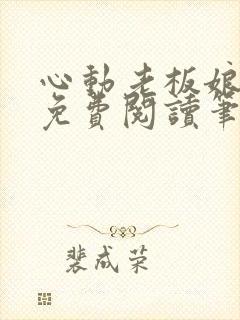 心動老板娘
免費閱讀筆
裴成荣